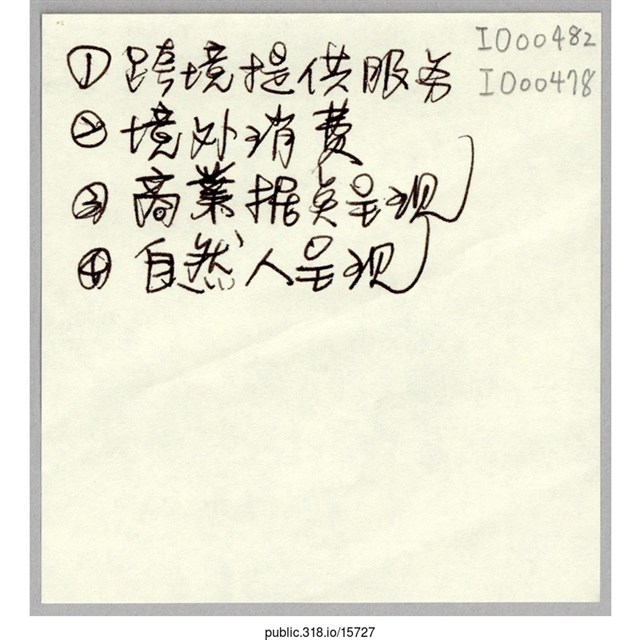 ① 跨境提供服务
② 境外消費
③ 商業据点呈现
④ 自然人呈现
I000482
I000478
public.318.io/15727